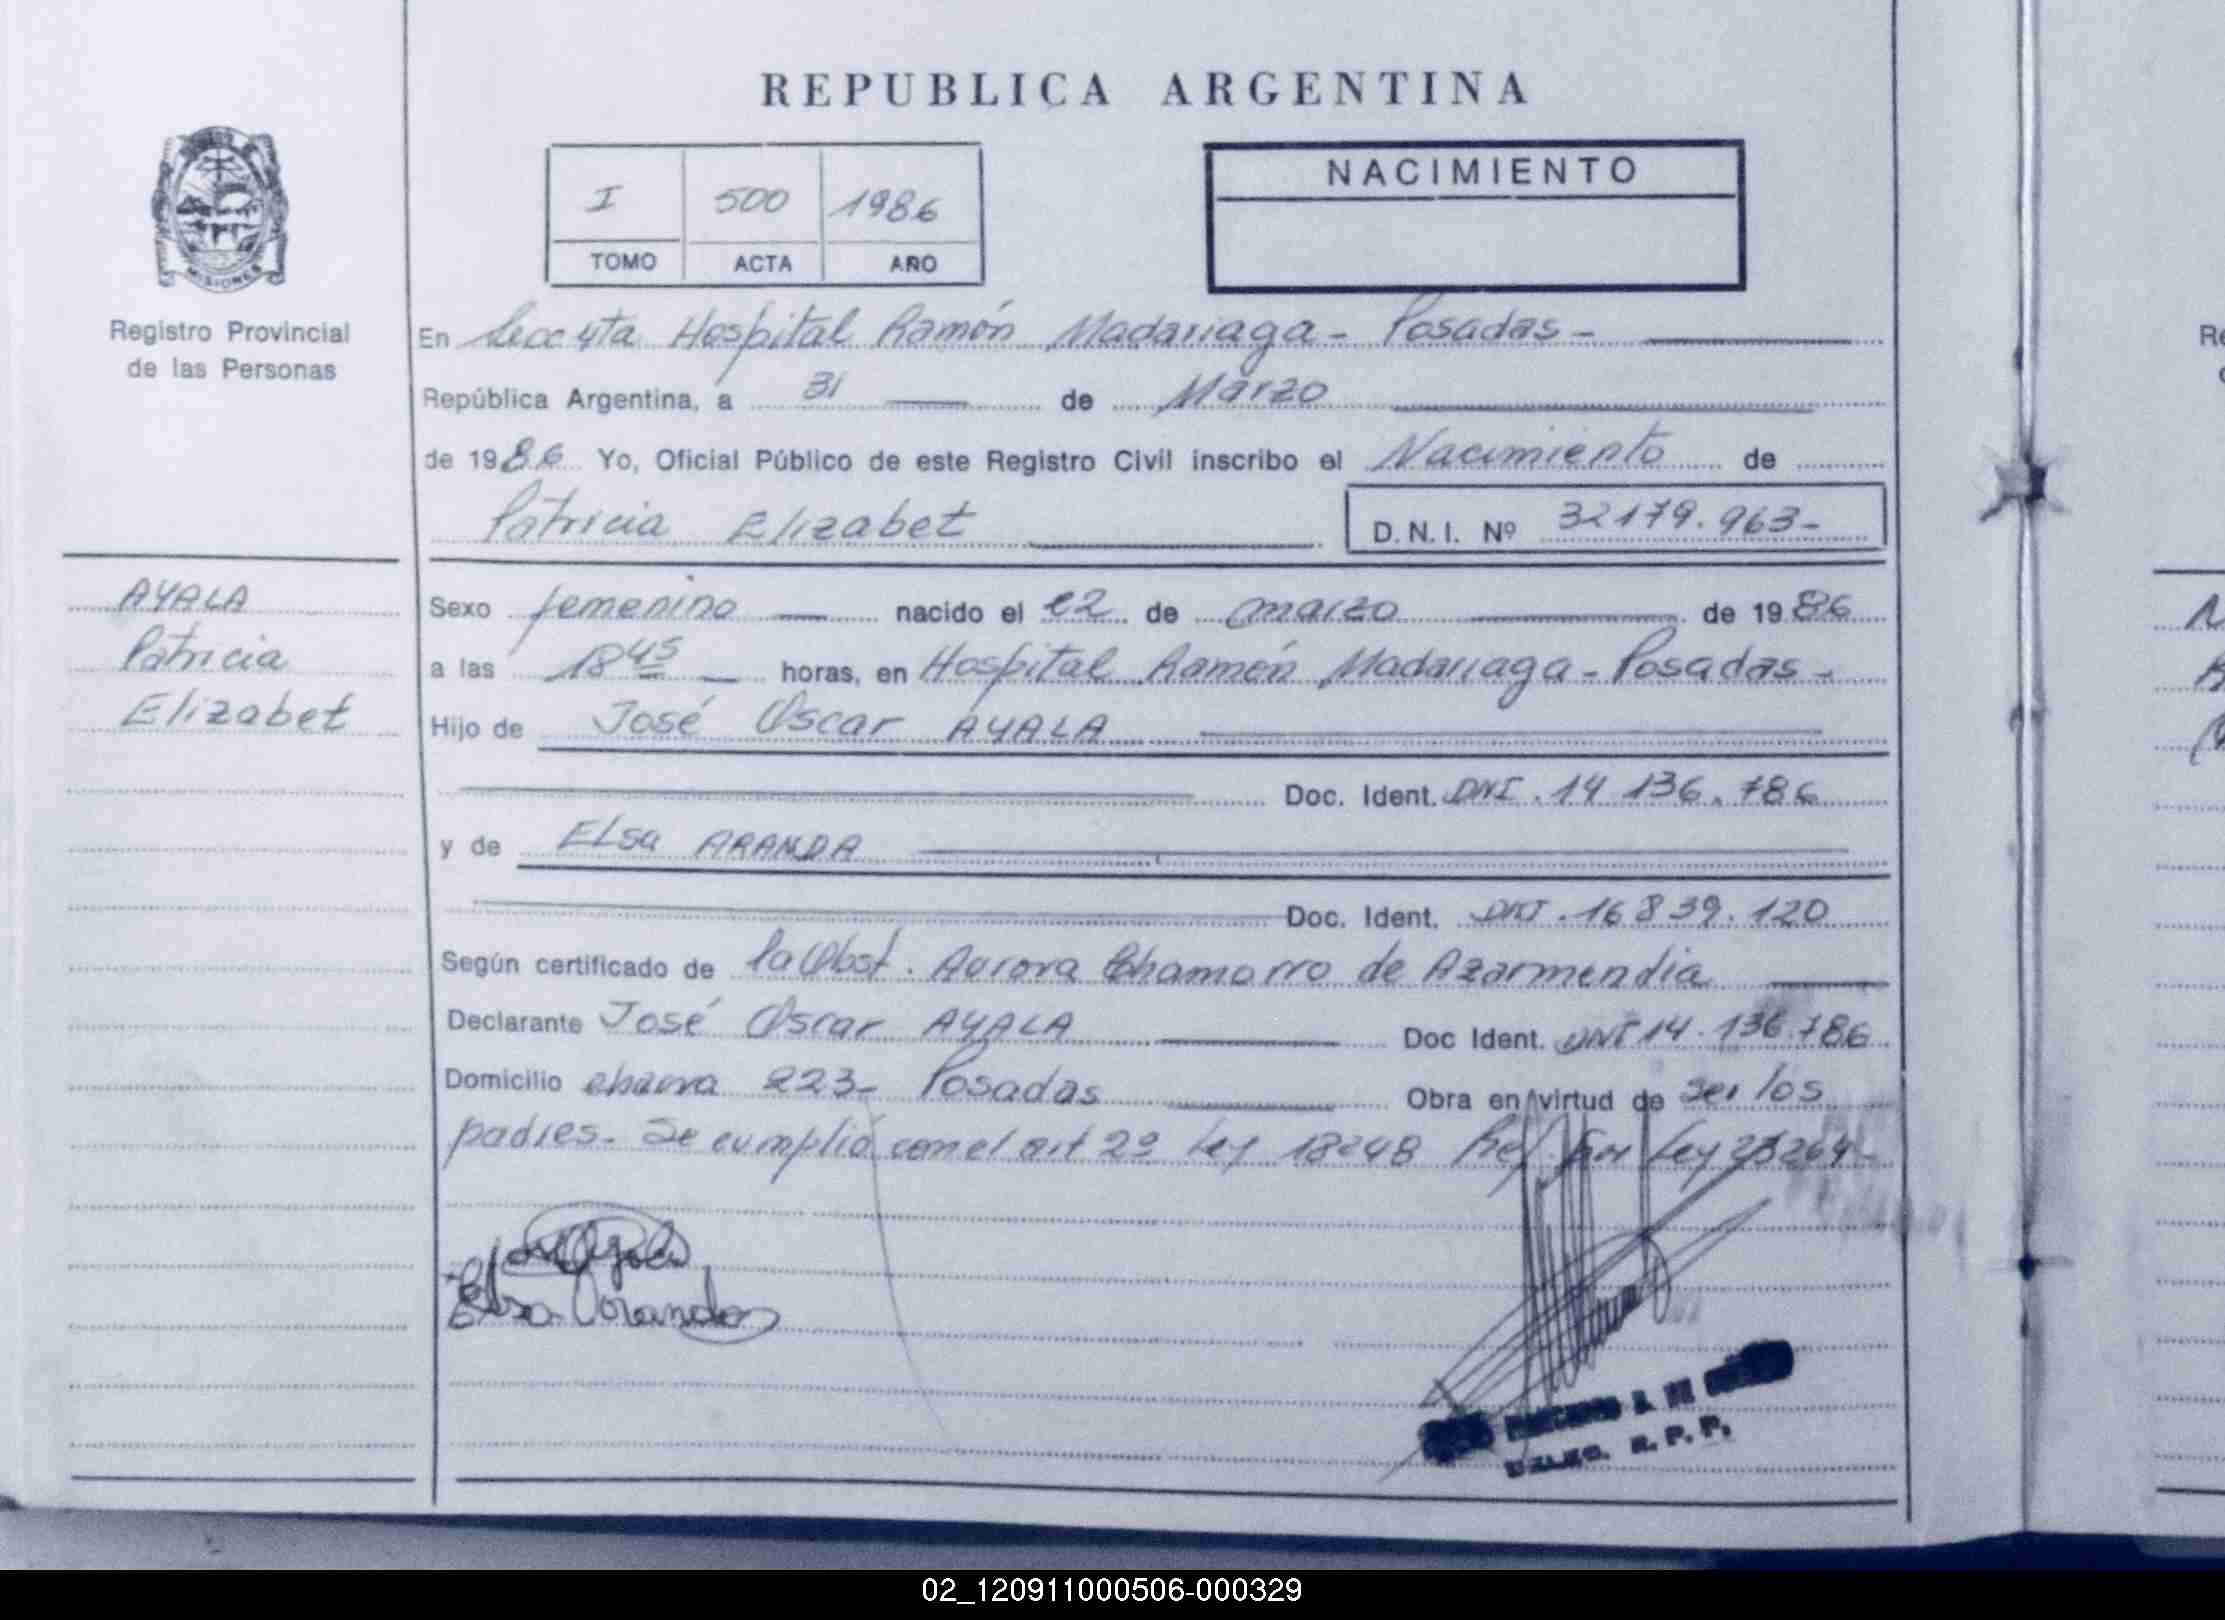 REPUBLICA ARGENTINA
MISIONES
Registro Provincial
de las Personas
I 500 1986
TOMO ACTA AÑO
NACIMIENTO
En Secc 4ta Hospital Ramón Madariaga - Posadas -
República Argentina, a 31 de Marzo
de 1986 Yo, Oficial Público de este Registro Civil inscribo el Nacimiento de
Patricia Elizabet
D.N.I. Nº 32179.963-
AYALA
Patricia
Elizabet
Sexo femenino nacido el 22 de marzo de 1986
a las 18 45 horas, en Hospital Ramón Madariaga - Posadas -
Hijo de José Oscar AYALA
Doc. Ident. DNI. 14 136. 786
y de Elsa ARANDA
Doc. Ident. DNI. 16 839. 120
Según certificado de la Obst. Aurora Chamorro de Azarmendia
Declarante José Oscar AYALA Doc Ident. DNI 14. 136.786
Domicilio 223- Posadas Obra en virtud de ser los
padres- Se cumplió con el art 2º Ley 18248 Ref. por Ley 23264-
Ayala
Elsa Aranda
DELEG. R. P. P.
02_120911000506-000329